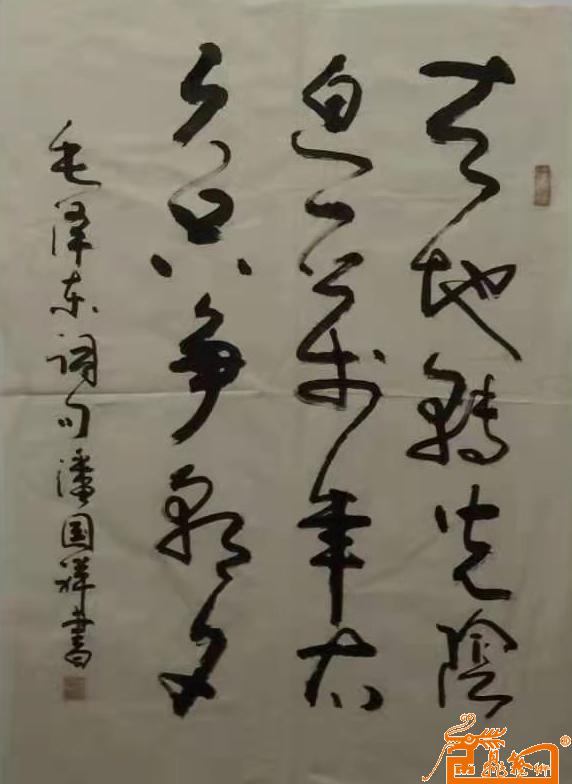 天地轉光陰
迫一萬年太
久只争朝夕
毛泽东词句潘国祥書